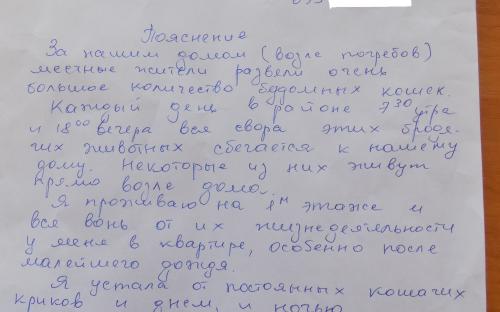 Пояснение
За нашим домом (возле погребов)
местные жители развели очень
большое количество бездомных кошек.
Каждый день в районе 7 30 утра
и 18 00 вечера вся свора этих бродя-
чих животных сбегается к нашему
дому. Некоторые из них живут
прямо возле дома.
Я проживаю на 1м этаже и
вся вонь от их жизнедеятельности
у меня в квартире, особенно после
малейшего дождя.
Я устала от постоянных кошачих
криков и днем, и ночью